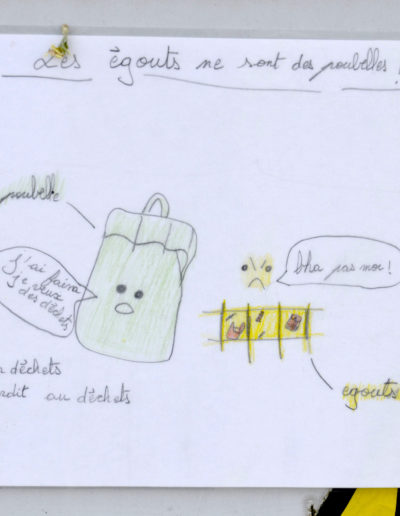 Les égouts ne sont des poubelles !
poubelle
J'ai faim
je veux
des déchets
bha pas moi !
déchets
au déchets
égouts